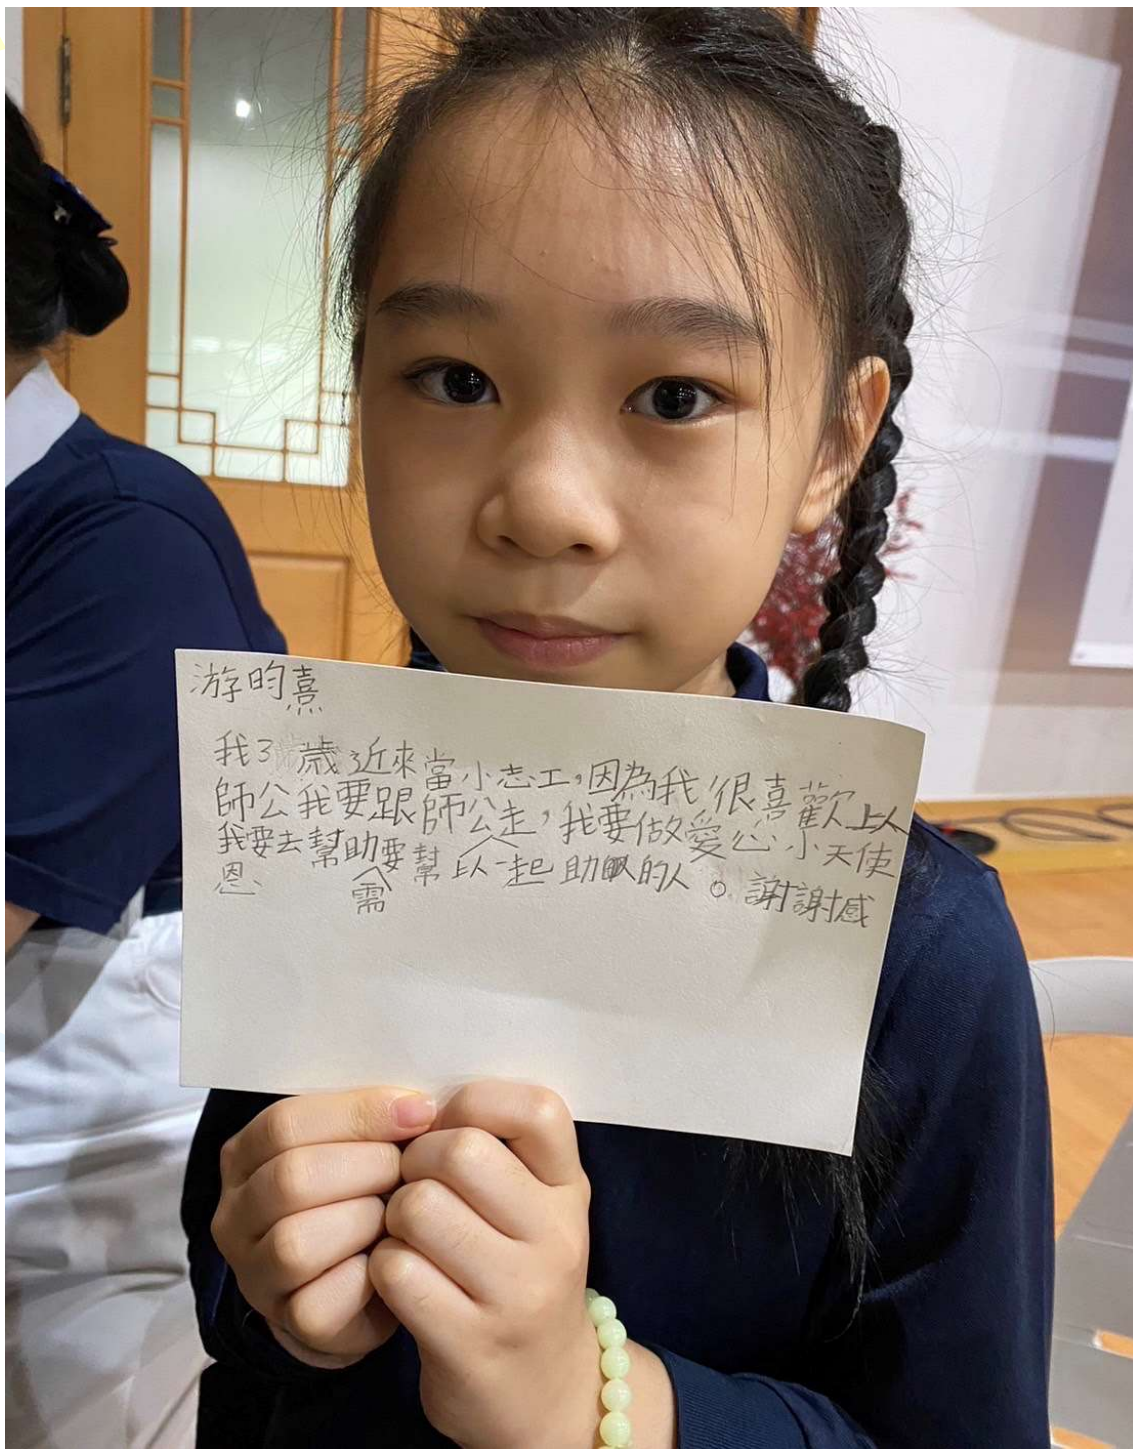 游昀熹
我3歲近來當小志工,因為我很喜歡上人
師公我要跟師公走,我要做愛心小天使
我要去幫助需要幫 一起 助 的人。謝謝感
恩